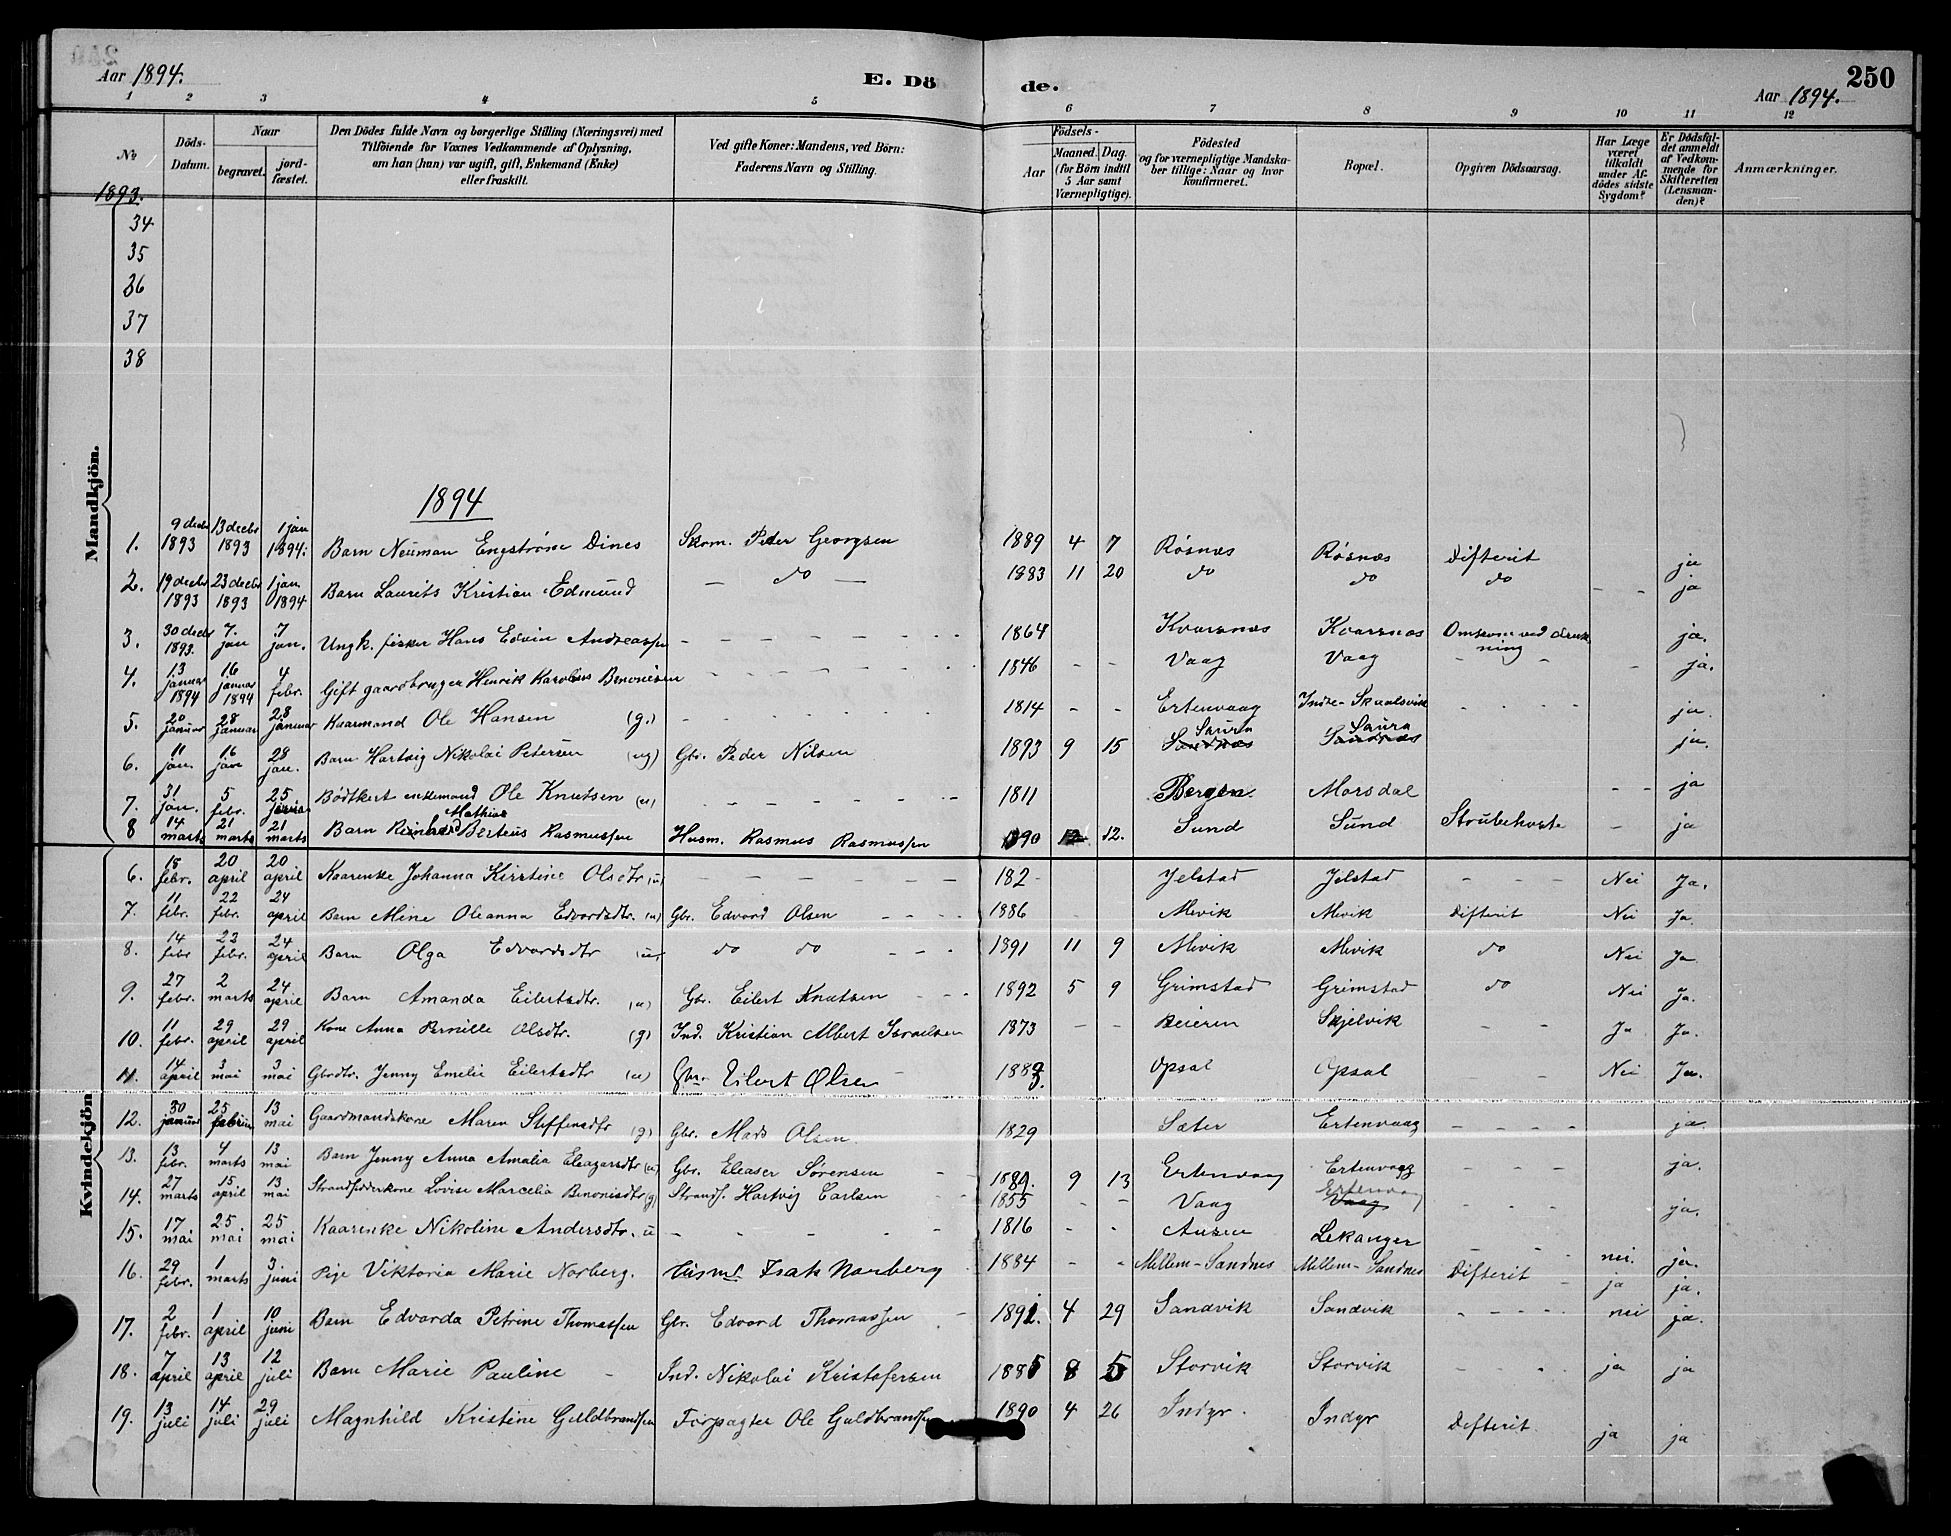 Aar 1894.
E. Dö
de.
250
Aar 1894.
1 2 3 4 5 6 7 8 9 10 11 12
No
Döds-Datum.
Naar
begravet.
jord-fæstet.
Den Dödes fulde Navn og borgerlige Stilling (Næringsvei) med
Tilföiende for Voxnes Vedkommende af Oplysning,
om han (hun) var ugift, gift, Enkemand (Enke)
eller fraskilt.
Ved gifte Koner: Mandens, ved Börn:
Faderens Navn og Stilling.
Födsels-
Aar
Maaned. Dag.
(for Börn indtil
5 Aar samt
Værnepligtige).
Födested
og for værnepligtige Mandska-
ber tillige: Naar og hvor
Konfirmeret.
Bopæl.
Opgiven Dödsaarsag.
Har Læge
været
tilkaldt
under Af-
dödes sidste
Sygdom?
Er Dödsfal-
det anmeldt
af Vedkom-
mende for
Skifteretten
(Lensman-
den)?
Anmærkninger.
1893.
34
35
36
37
38
Mandkjön.
1894
1. 9 decbr 1893 13 decbr 1893 1 jan 1894. Barn Neuman Engstrøm Dines Skom. Peder Georgsen 1889 4 7 Røsnæs Røsnæs Difterit ja
2. 19 decbr 1893 23 decbr 1893 1 jan 1894 Barn Laurits Kristian Edmund — do — 1883 11 20 do do do - - ja
3. 30 decbr 1893. 7. jan 7 jan. Ungk. fisker Hans Edvin Andreassen - - - 1864 Kvarsnæs Kvarsnæs Omkom ved drukning ja.
4. 13 januar 1894 16 januar 1894 4 febr. Gift gaardbruger Henrik Karolius Benonisen - - - 1846 - - Vaag Vaag - - - ja.
5. 20 januar 28 januar 28 januar Kaarmand Ole Hansen (g.) - - - 1814 - - Ertenvaag Indre-Skaalsvik - - - ja.
6. 11 jan. 16 jan 28 jan. Barn Hartvig Nikolai Petersen (ug) Gbr. Peder Nilsen 1893 9 15 Saura Sandnæs Saura Sandnæs ja.
7. 31 jan. 5 febr. 25 Bødtkert enkemand Ole Knutsen (u) - - - 1811 Bergen. Morsdal - - ja
8 14 marts 21 marts 21 marts Barn Reinhard Mathias Berteus Rasmussen Husm. Rasmus Rasmussen 1890 12. Sund Sund Strubehoste - ja
Kvindekjön
6. 18 febr. 20 april 20 april Kaarenke Johanna Kirstine Olsdtr (u) - - - 182- Jelstad Jelstad - - - Nei Ja.
7. 11 febr. 22 febr. 24 april Barn Mine Oleanna Edvardsdtr. (u) Gbr. Edvard Olsen - - - 1886 Mevik Mevik Difterit Nei Ja
8. 14 febr 23 febr. 24 april Barn Olga Edvardsdtr (u) do do - - - 1891 11 9 Mevik Mevik do Nei Ja
9. 27 febr. 2 marts 24 april Barn Amanda Eilertsdtr. (u) Gbr. Eilert Knutsen - - - 1892 5 9 Grimstad Grimstad do Nei Ja.
10. 11 febr. 29 april 29 april Kone Anna Pernille Olsdtr. (g) Ind. Kristian Albert Israelsen 1873 - - Beieren Skjelvik - - Ja Ja.
11. 14 april 3 mai 3 mai Gbrdtr. Jenny Emelie Eilertsdtr (u) Gbr. Eilert Olsen - 1883. Opsal Opsal Nei Ja.
12. 30 januar 25 februar 13 mai Gaardmandskone Maren Steffensdtr (g) Gbr. Mads Olsen. 1829 Sæter Ertenvaag - - - - ja.
13. 13 febr. 4 marts 13 mai Barn Jenny Anna Amalia Eleazarsdtr (u) Gbr. Eleaser Sørensen - 1889. 9 13 Ertenvaag Ertenvaag - - - - ja.
14. 27 marts 15 april 13 mai Strandsidderkone Lovise Marcelia Benonisdtr (g) Strands. Hartvig Carlsen - - 1855 - - Vaag Ertenvaag Vaag - - - ja.
15. 17 mai 25. mai 25 mai Kaarenke Nikoline Andersdtr. u - - - - 1816 - - Ausen Lekanger - - nei. ja.
16. 29 febr. 1 marts 3. juni Pige Viktoria Marie Norberg. Husmd Isak Norberg - 1884 - - Mellem-Sandnes Mellem-Sandnes Difterit - ja ja.
17. 2 febr. 1 april 10 juni Barn Edvarda Petrine Thomassen Gbr. Edvard Thomassen - 1891. 4 29 Sandvik Sandvik - - - - nei ja.
18. 7 april 13 april 12 juli Barn Marie Pauline - Ind. Nikolai Kristofersen 1885 8 5 Storvik Storvik - - - ja ja
19. 13 juli 14 juli 29 juli Magnhild Kristine Guldbrandsen Forpagter Ole Guldbrandsen 1890 4 26 Indyr. Indyr Difterit ja ja